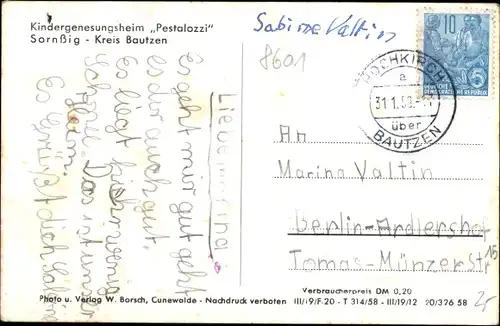 Kindergenesungsheim „Pestalozzi"
Sornßig - Kreis Bautzen
Sabine Valtin
8601
10
DEUTSCHE DEMOKRATISCHE REPUBLIK
5
HOCHKIRCH
a
31.1.59
über
BAUTZEN
Liebe
Es geht mir gut geht
es dir auch gut.
Es liegt hier wenig
Schnee. Das ist unser
Heim.
Es grüßt dich Sabine
An
Marina Valtin
Berlin-Ardlershof
Tomas-Münzer Str 15
Verbraucherpreis DM 0,20
Photo u. Verlag W. Borsch, Cunewalde - Nachdruck verboten III/19/F.20 - T 314/58 - III/19/12 20/326 58